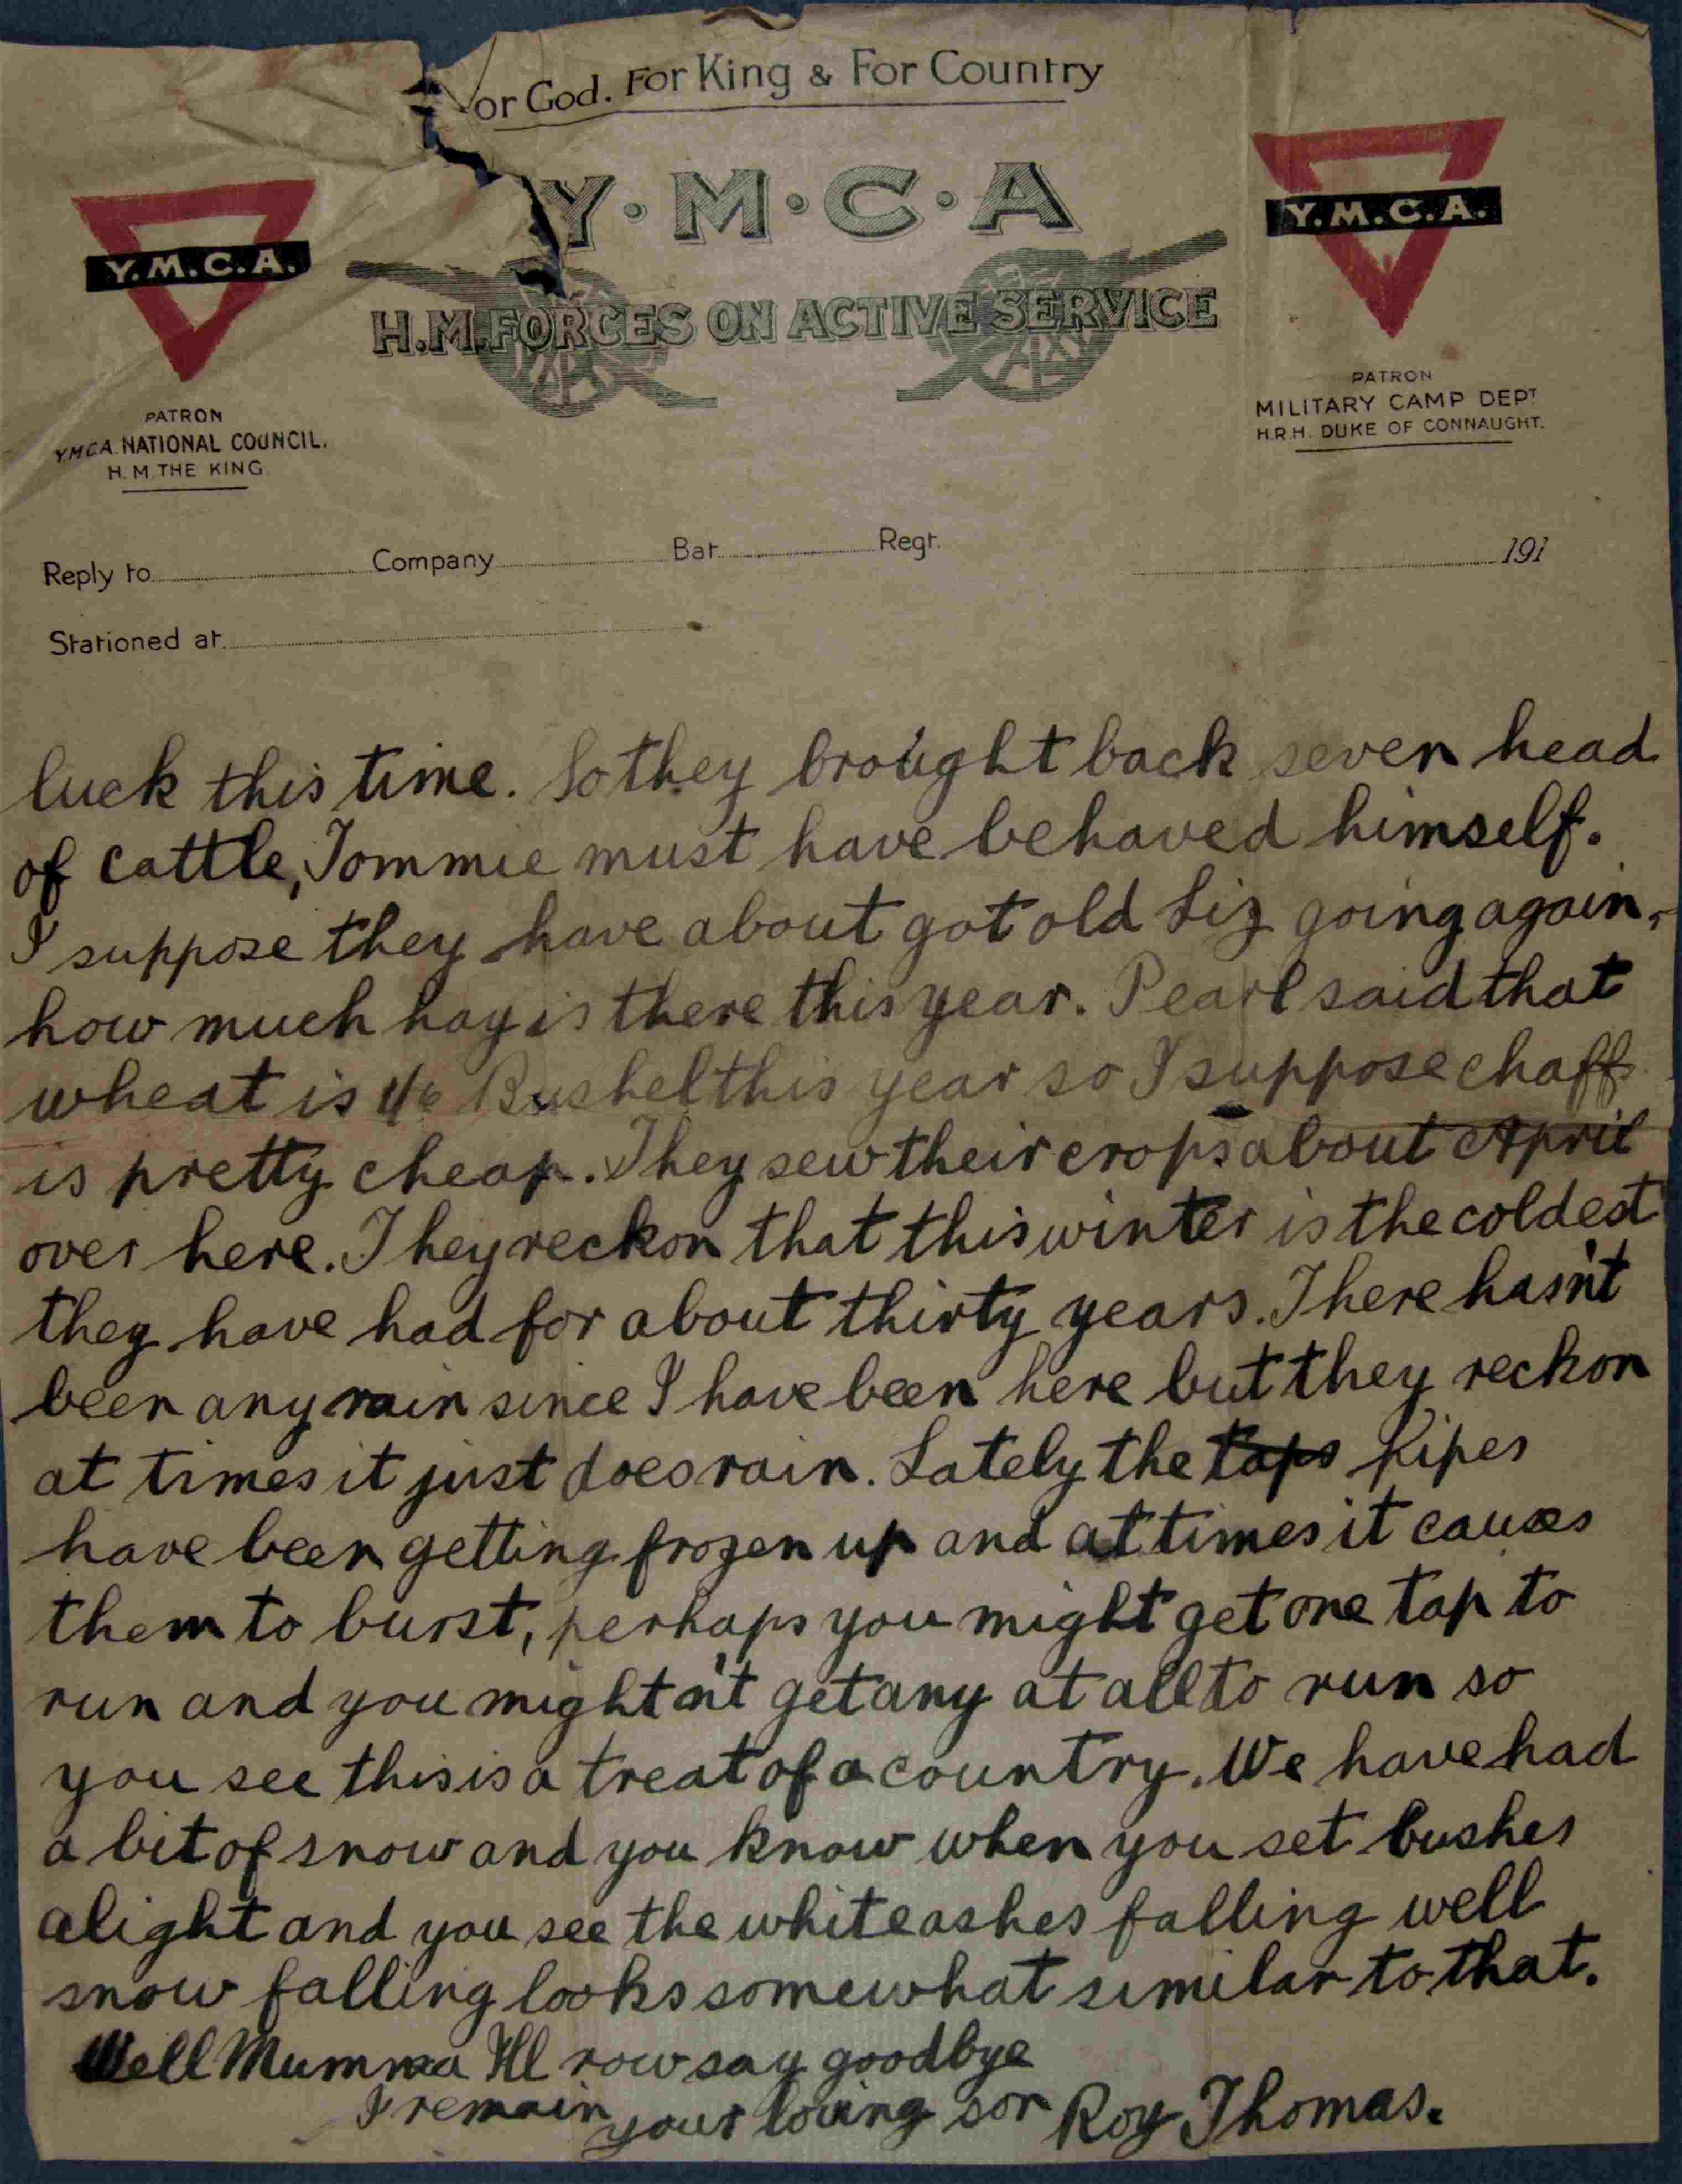 or God. For King & For Country
Y·M·C·A
Y.M.C.A.
Y.M.C.A.
H.M. FORCES ON ACTIVE SERVICE
PATRON
Y.M.C.A. NATIONAL COUNCIL.
H.M. THE KING
PATRON
MILITARY CAMP DEPT
H.R.H. DUKE OF CONNAUGHT.
Reply to Company Bat Regt. 191
Stationed at
luck this time. So they brought back seven head
of cattle, Tommie must have behaved himself.
I suppose they have about got old Liz going again,
how much hay is there this year. Pearl said that
wheat is 4/6 Bushel this year so I suppose chaff
is pretty cheap. They sew their crops about April
over here. They reckon that this winter is the coldest
they have had for about thirty years. There hasn't
been any rain since I have been here but they reckon
at times it just does rain. Lately the taps pipes
have been getting frozen up and at times it causes
them to burst, perhaps you might get one tap to
run and you mightn't get any at all to run so
you see this is a treat of a country. We have had
a bit of snow and you know when you set bushes
alight and you see the white ashes falling well
snow falling looks somewhat similar to that.
Well Mumma I'll now say goodbye
I remain your loving son Roy Thomas.